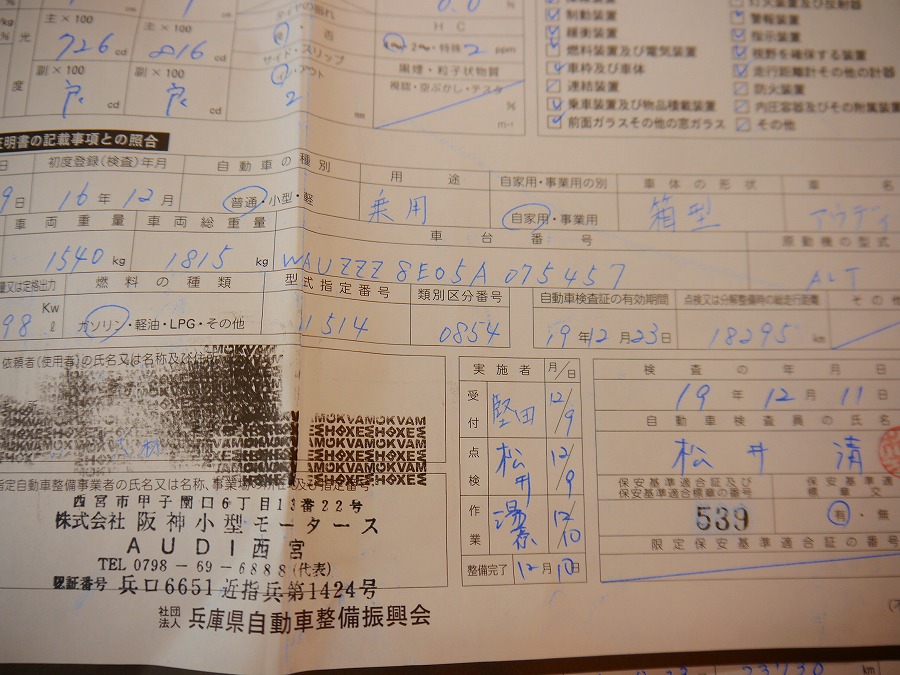 主×100 主×100
光 726 cd 816 cd
副×100 副×100
度 cd cd
サイド・スリップ
イン・アウト
2 mm
0.0 %
HC
4・2・特殊2 ppm
黒煙・粒子状物質
視認・空ぶかし・テスタ
%
m⁻¹
制動装置
緩衝装置
燃料装置及び電気装置
車枠及び車体
連結装置
乗車装置及び物品積載装置
前面ガラスその他の窓ガラス
灯火装置及び反射器
警報装置
指示装置
視野を確保する装置
走行距離計その他の計器
防火装置
内圧容器及びその附属装置
その他
証明書の記載事項との照合
日 初度登録(検査)年月 自動車の種別 用途 自家用・事業用の別 車体の形状 車名
9日 16年12月 普通・小型・軽 乗用 自家用・事業用 箱型 アウディ
車両重量 車両総重量 車台番号 原動機の型式
1540 kg 1815 kg WAUZZZ8E05A075457 ALT
量又は定格出力 燃料の種類 型式指定番号 類別区分番号 自動車検査証の有効期間 点検又は分解整備時の総走行距離 その他
98 Kw ℓ ガソリン・軽油・LPG・その他 11514 0854 19年12月23日 18295 km
依頼者(使用者)の氏名又は名称及び住所
実施者 月/日
受付 堅田 12/9
点検 松井 12/9
作業 湯原 12/10
整備完了 12月10日
検査の年月日
19年12月11日
自動車検査員の氏名
松井 清
保安基準適合証及び保安基準適合標章の番号
539
有・無
限定保安基準適合証の番号
指定自動車整備事業者の氏名又は名称、事業場の所在及び指定番号
西宮市甲子園口6丁目13番22号
株式会社 阪神小型モータース
AUDI西宮
TEL 0798-69-6888(代表)
認証番号 兵口6651 近指兵第1424号
社団法人 兵庫県自動車整備振興会
23730 km